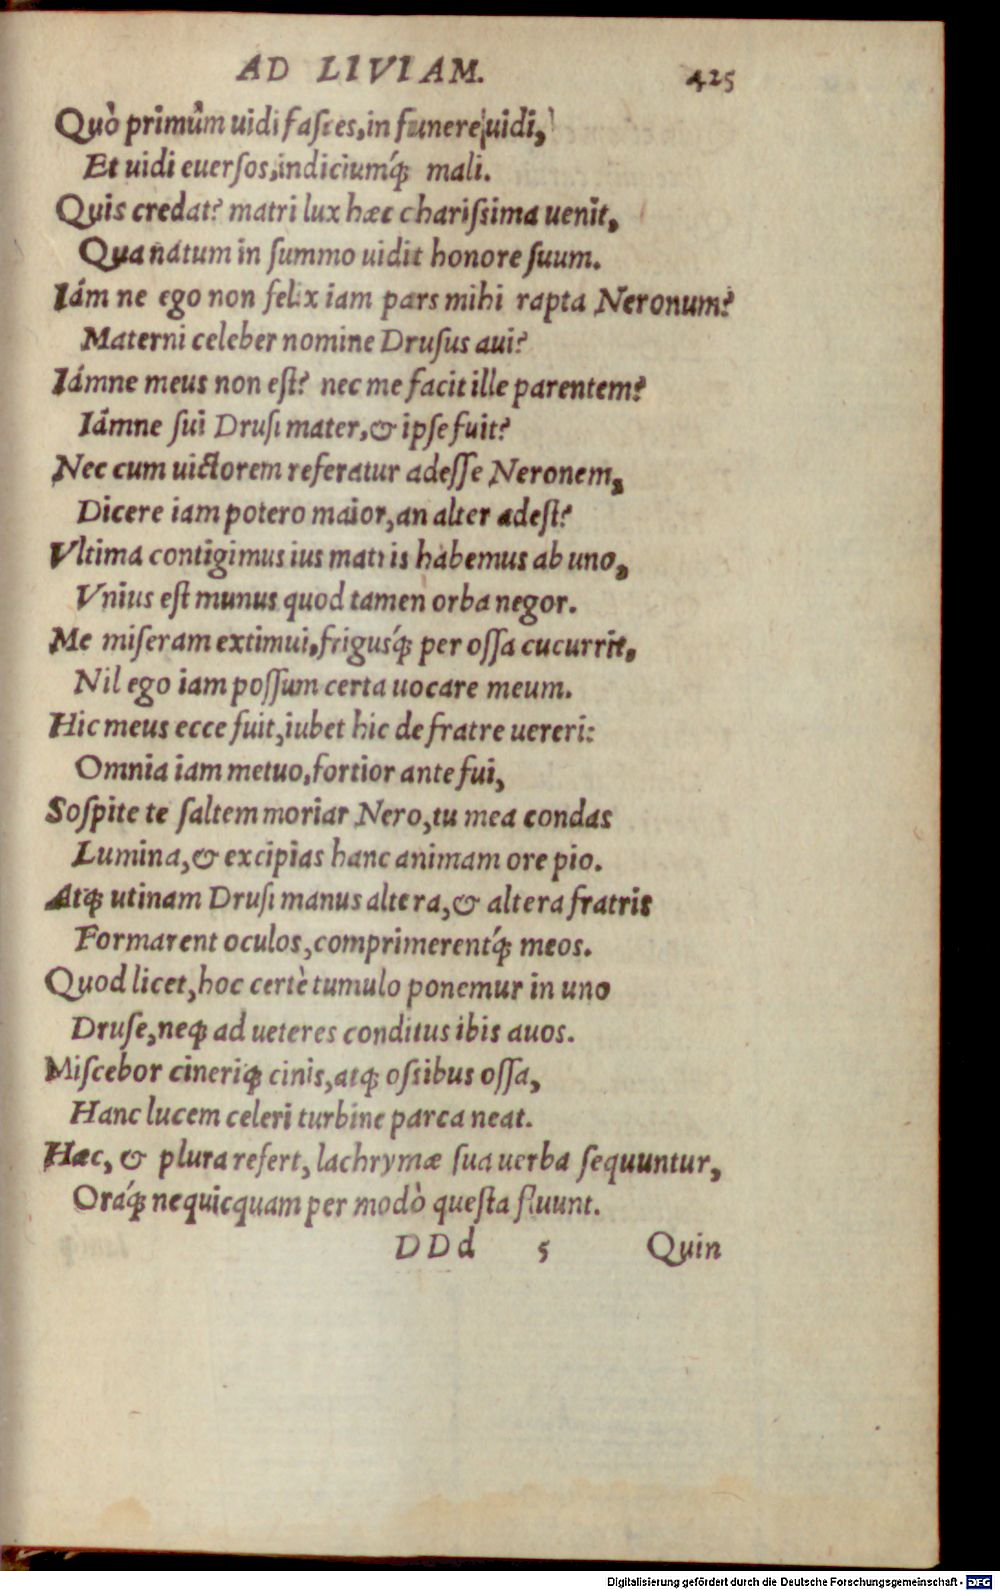 AD LIVIAM. 425
Quò primùm uidi fasces, in funere uidi,
Et uidi euersos, indiciumq́; mali.
Quis credat? matri lux hæc charissima uenit,
Qua natum in summo uidit honore suum.
Iám ne ego non felix iam pars mihi rapta Neronum?
Materni celeber nomine Drusus aui?
Iámne meus non est? nec me facit ille parentem?
Iámne sui Drusi mater, & ipse fuit?
Nec cum uictorem referatur adesse Neronem,
Dicere iam potero maior, an alter adest?
Vltima contigimus ius matris habemus ab uno,
Vnius est munus quod tamen orba negor.
Me miseram extimui, frigusq́; per ossa cucurrit,
Nil ego iam possum certa uocare meum.
Hic meus ecce fuit, iubet hic de fratre uereri:
Omnia iam metuo, fortior ante fui,
Sospite te saltem moriar Nero, tu mea condas
Lumina, & excipias hanc animam ore pio.
Atq; utinam Drusi manus altera, & altera fratris
Formarent oculos, comprimerentq́; meos.
Quod licet, hoc certè tumulo ponemur in uno
Druse, neq; ad ueteres conditus ibis auos.
Miscebor cineriq; cinis, atq; ossibus ossa,
Hanc lucem celeri turbine parca neat.
Hæc, & plura refert, lachrymæ sua uerba sequuntur,
Oráq́; nequicquam per modò questa fluunt.
DDd 5 Quin
Digitalisierung gefördert durch die Deutsche Forschungsgemeinschaft - DFG